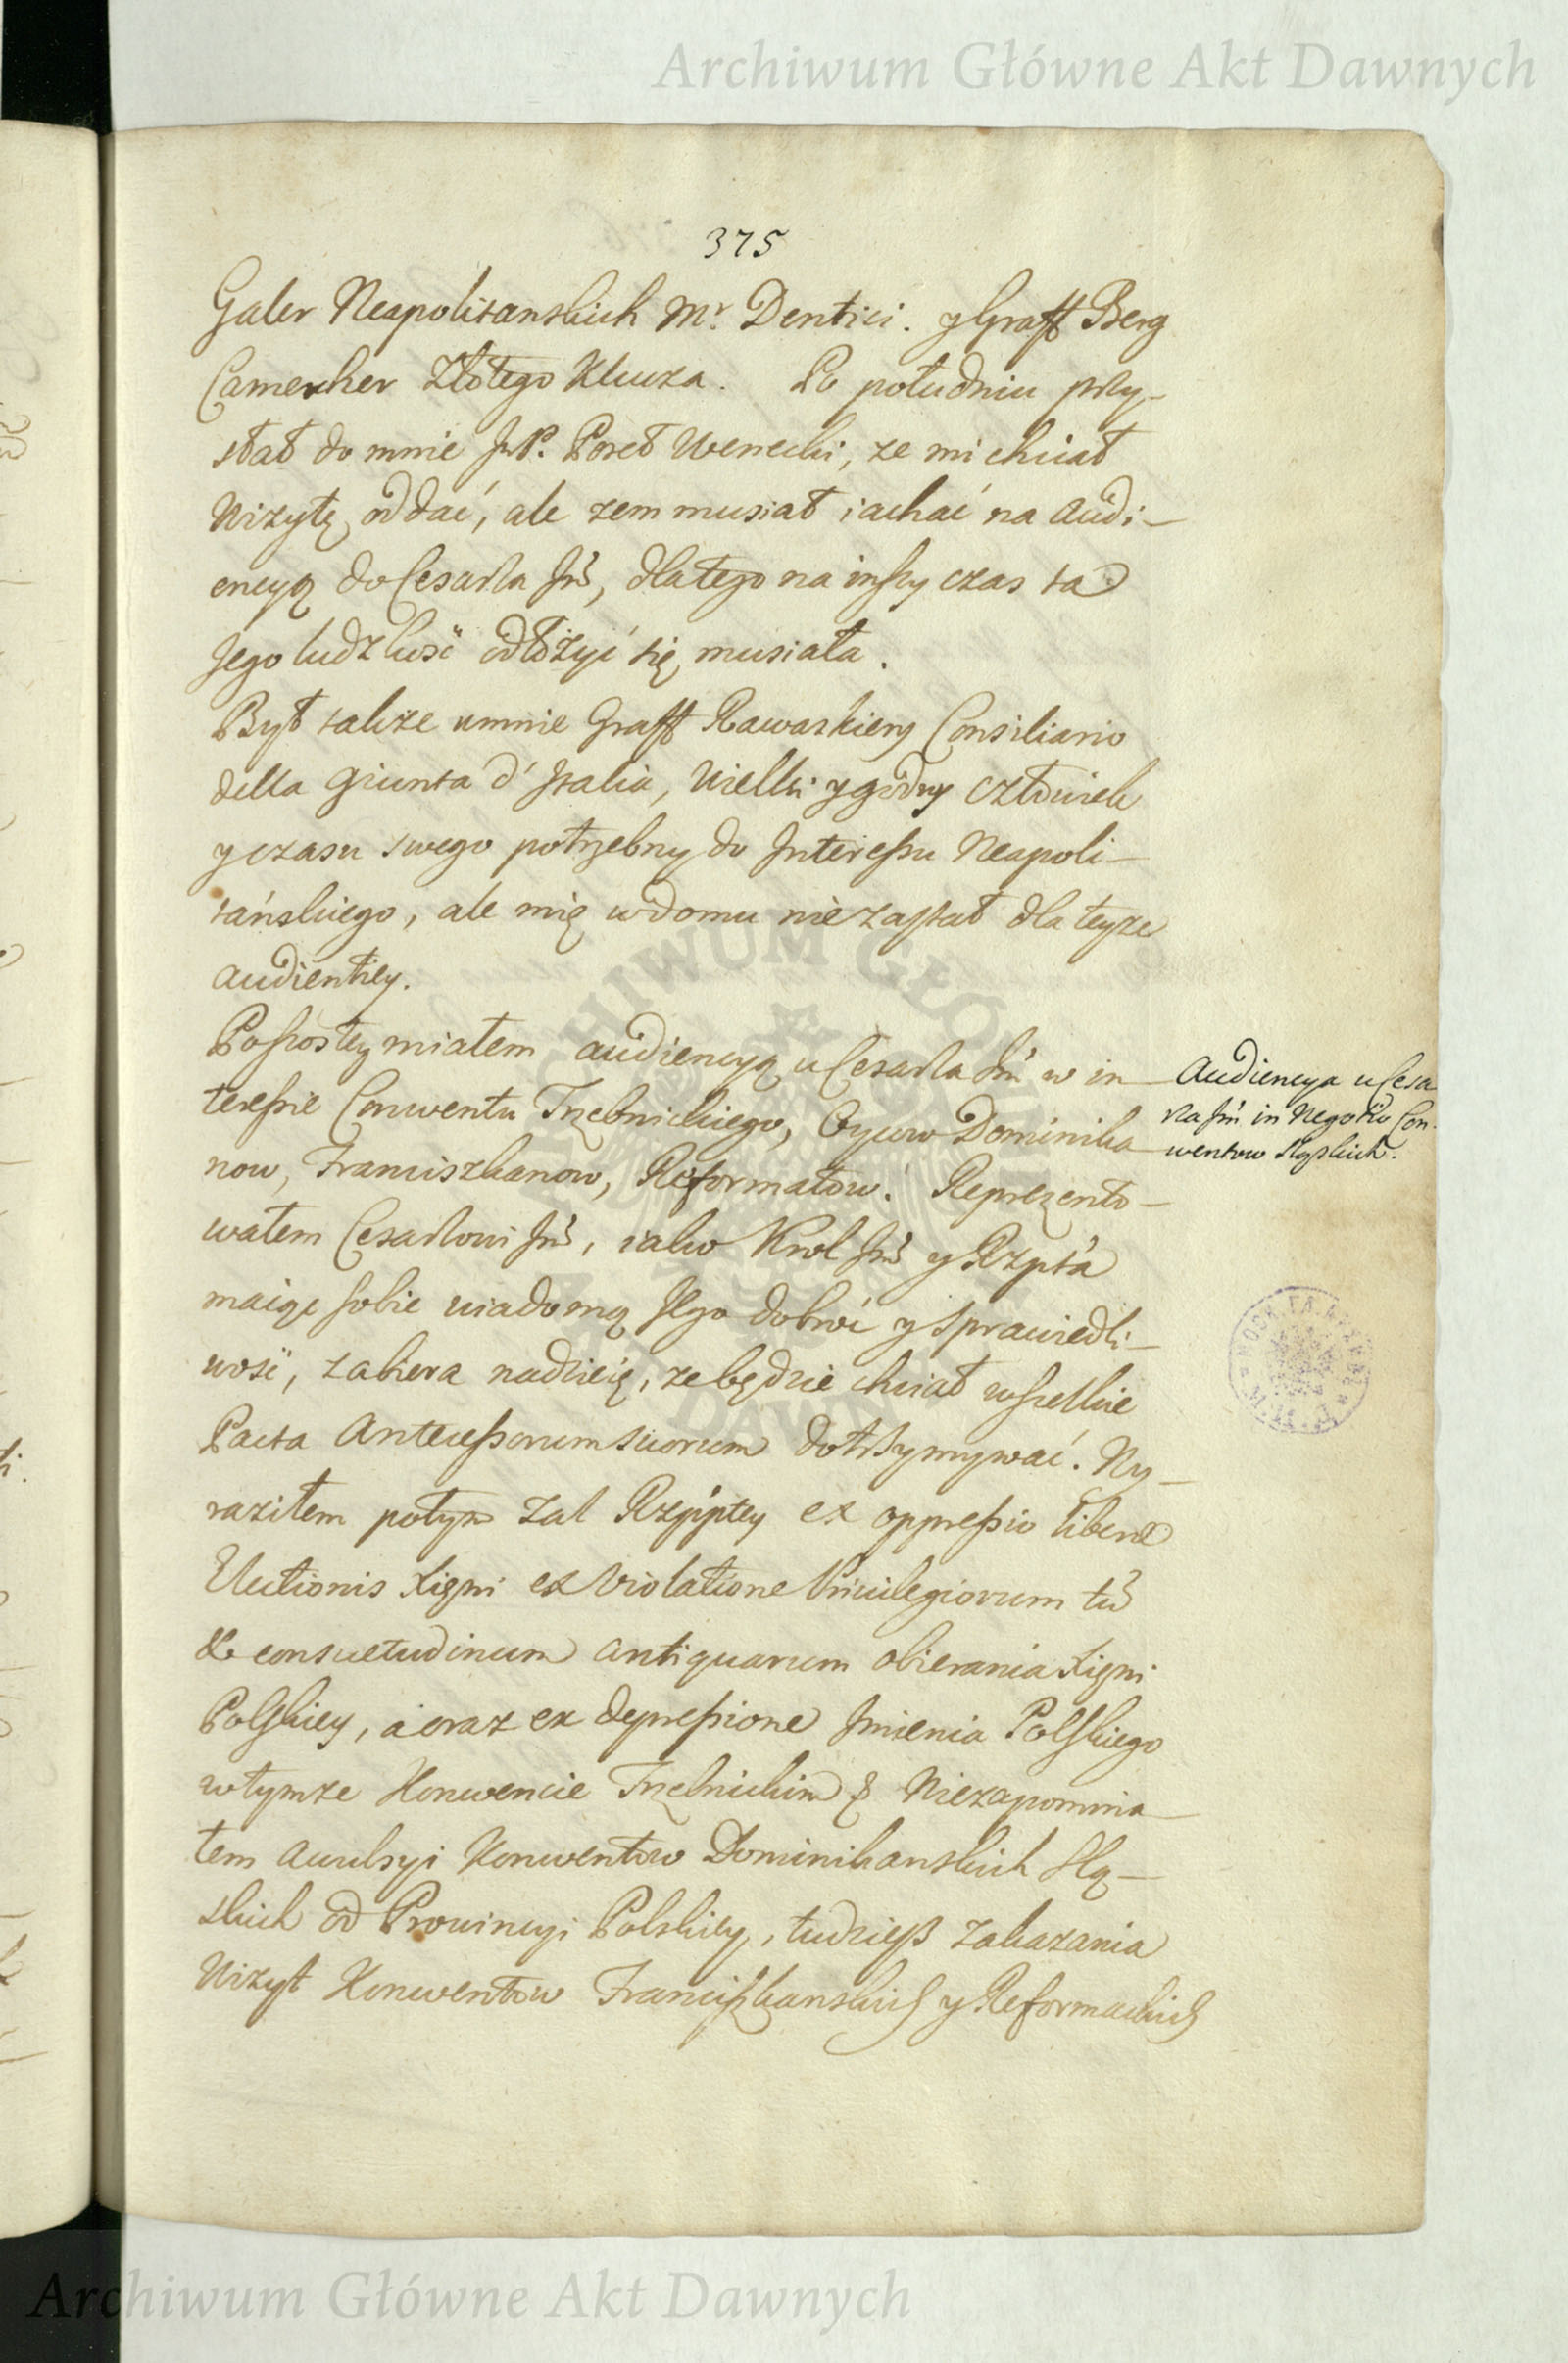 Archiwum Główne Akt Dawnych
375
Galer Neapolitanskich Mr. Dentici. y Graff Berg
Camerher Złotego Klucza. Po południu przy-
słał do mnie JP. Poseł Wenecki, ze mi chciał
Wizytę oddać, ale zem musiał iachać na Audi-
encyą do Cesarza Jmci, dlatego na inszy czas ta
Jego ludzkość odłożyć się musiała.
Był takze umnie Graff Rawaskiery Consiliario
della Giunta d'Italia, Wielki y godny Człowiek
y czasu swego potrzebny do Interessu Neapoli-
tańskiego, ale mię w domu nie zastał dla teyze
Audientiey.
Poszostey miałem audiencyą u Cesarza Jmci w in-
teressie Conwentu Trzebnickiego, Oycow Dominika-
now, Franciszkanow, Reformatow. Reprezento-
wałem Cesarzowi Jmci, iako Krol Jmci y Rzpta
maiąc sobie wiadomą Jego dobroć y sprawiedli-
wość, zabiera nadzieię, ze będzie chciał wszelkie
Pacta Antecessorum suorum dotrzymywać. Wy-
raziłem potym zal Rzpptey ex oppressio liberæ
Electionis Xięni ex Violatione Privilegiorum tũ
& consuetudinum antiquarum obierania Xięni
Polskiey, a oraz ex depressione Imienia Polskiego
w tymze Konwencie Trzebnickim & Niezapomnia-
łem avulsyi Konwentow Dominikanskich Slą-
skich od Prowincyi Polskiey, tudziesz zakazania
Wizyt Konwentow Franciszkanskich y Reformackich
Audiencya u Cesa
rza Jmci in Negotio Con-
wentow Sląskich.
Archiwum Główne Akt Dawnych